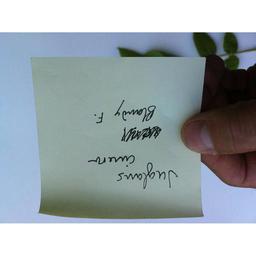 Juglans
ciner
Blandy F.